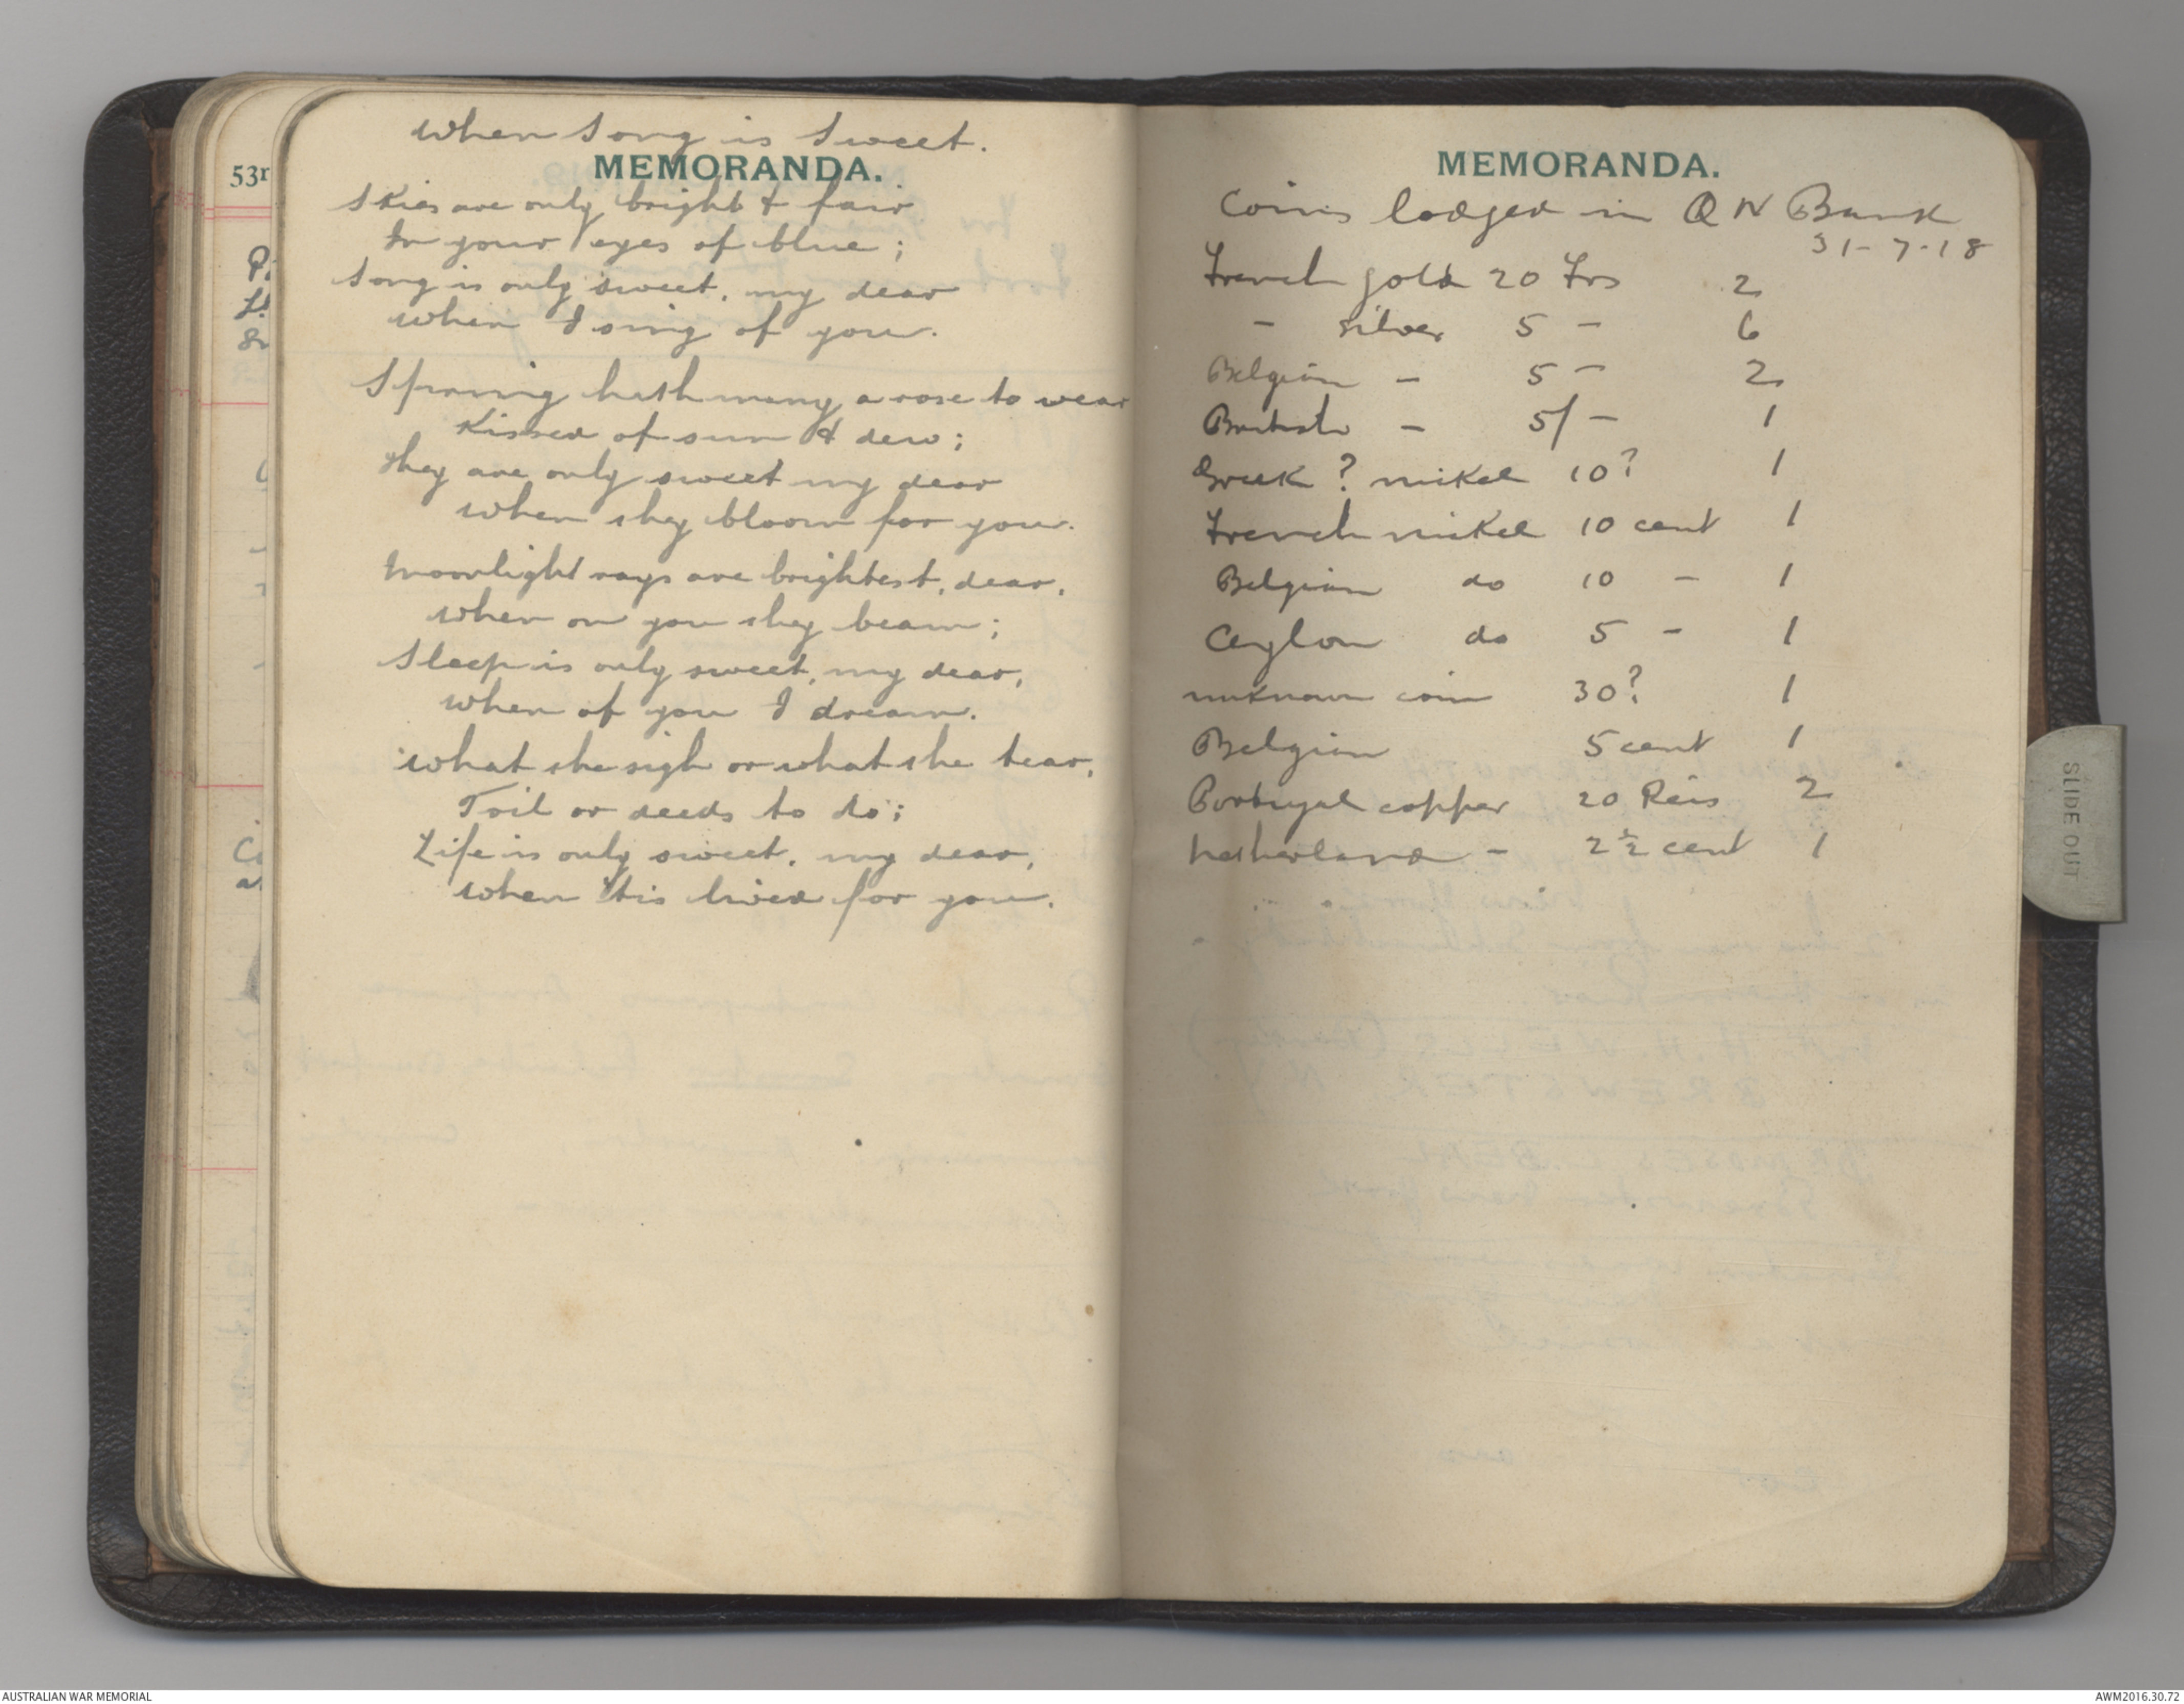 When Song is Sweet.
MEMORANDA.
Skies are only bright & fair
In your eyes of blue;
Song is only sweet, my dear
when I sing of you.
Spring hath many a rose to wear
Kissed of sun & dew;
they are only sweet my dear
when they bloom for you.
Moonlight rays are brightest, dear,
when on you they beam;
Sleep is only sweet, my dear,
when of you I dream.
what the sigh or what the tear,
Toil or deeds to do;
Life is only sweet, my dear,
when 'tis lived for you.
53r
MEMORANDA.
Coins lodged in Q N Bank
31-7-18
French gold 20 Frs 2
- silver 5 - 6
Belgian - 5 - 2
British - 5/- 1
Greek ? nikel 10? 1
French nikel 10 cent 1
Belgian do 10 - 1
Ceylon do 5 - 1
unknown coin 30? 1
Belgian 5 cent 1
Portugal copper 20 Reis 2
Netherland - 2 1/2 cent 1
SLIDE OUT
AUSTRALIAN WAR MEMORIAL
AWM2016.30.72